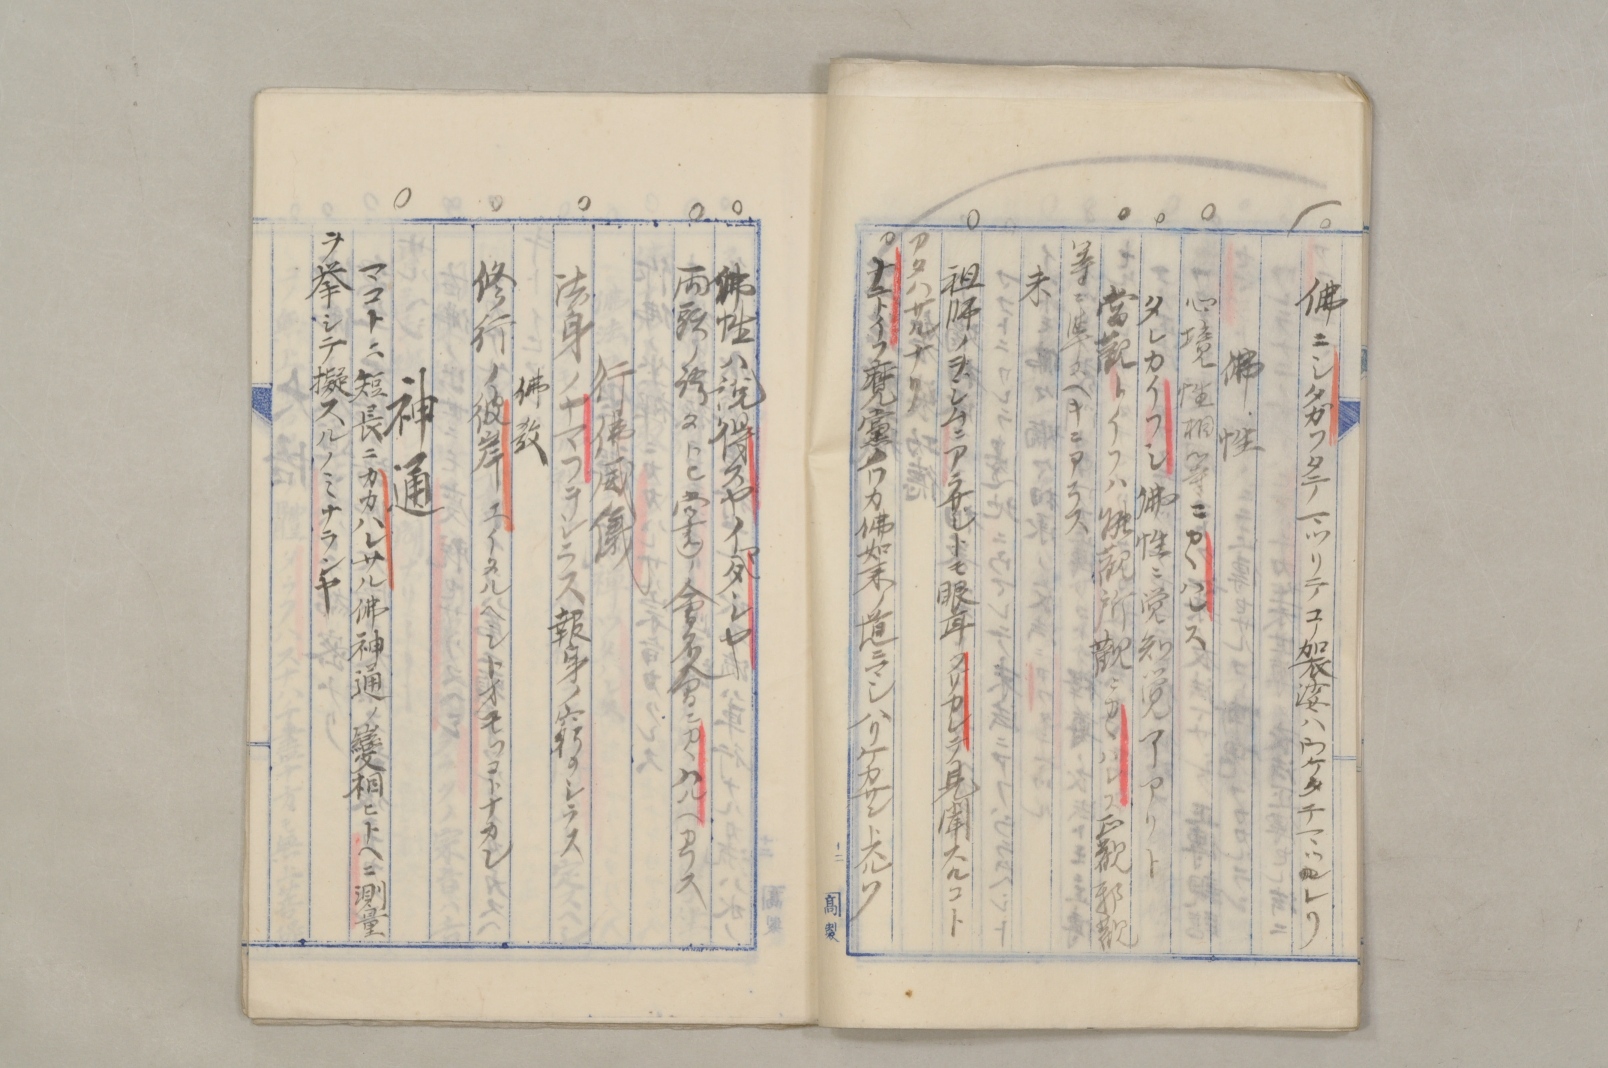 佛ニシタガフタテマツリテコノ袈裟ハウケタテマツレリ
佛性
心境性相等ニカカハレス
タレカイフシ佛性ニ覚知覚了アリト
當觀トイフハ能觀所觀ニカカハレス正觀邪觀
等ニ準スヘキニアラス
未
祖師ノヲシムニアラサレトモ眼耳フサカレテ見聞スルコト
アタハサルナリ
ナニトイフ魔黨ノワカ佛如来ノ道ニマシハリケカサントスルソ
佛性ハ説得スヤイマタシヤ
両頭ノ
會不會ニカカハルヘカラス
行佛威儀
法身ノナマコヲシラス報身ノ窮ヲシラス
佛教
修行ノ彼岸ニイタルヘシトオモフコトナカレ
神通
マコトニ短長ニカカハレサル佛神通ノ變相ヒトヘニ測量
ヲ挙シテ擬スルノミナランヤ
十二
高製